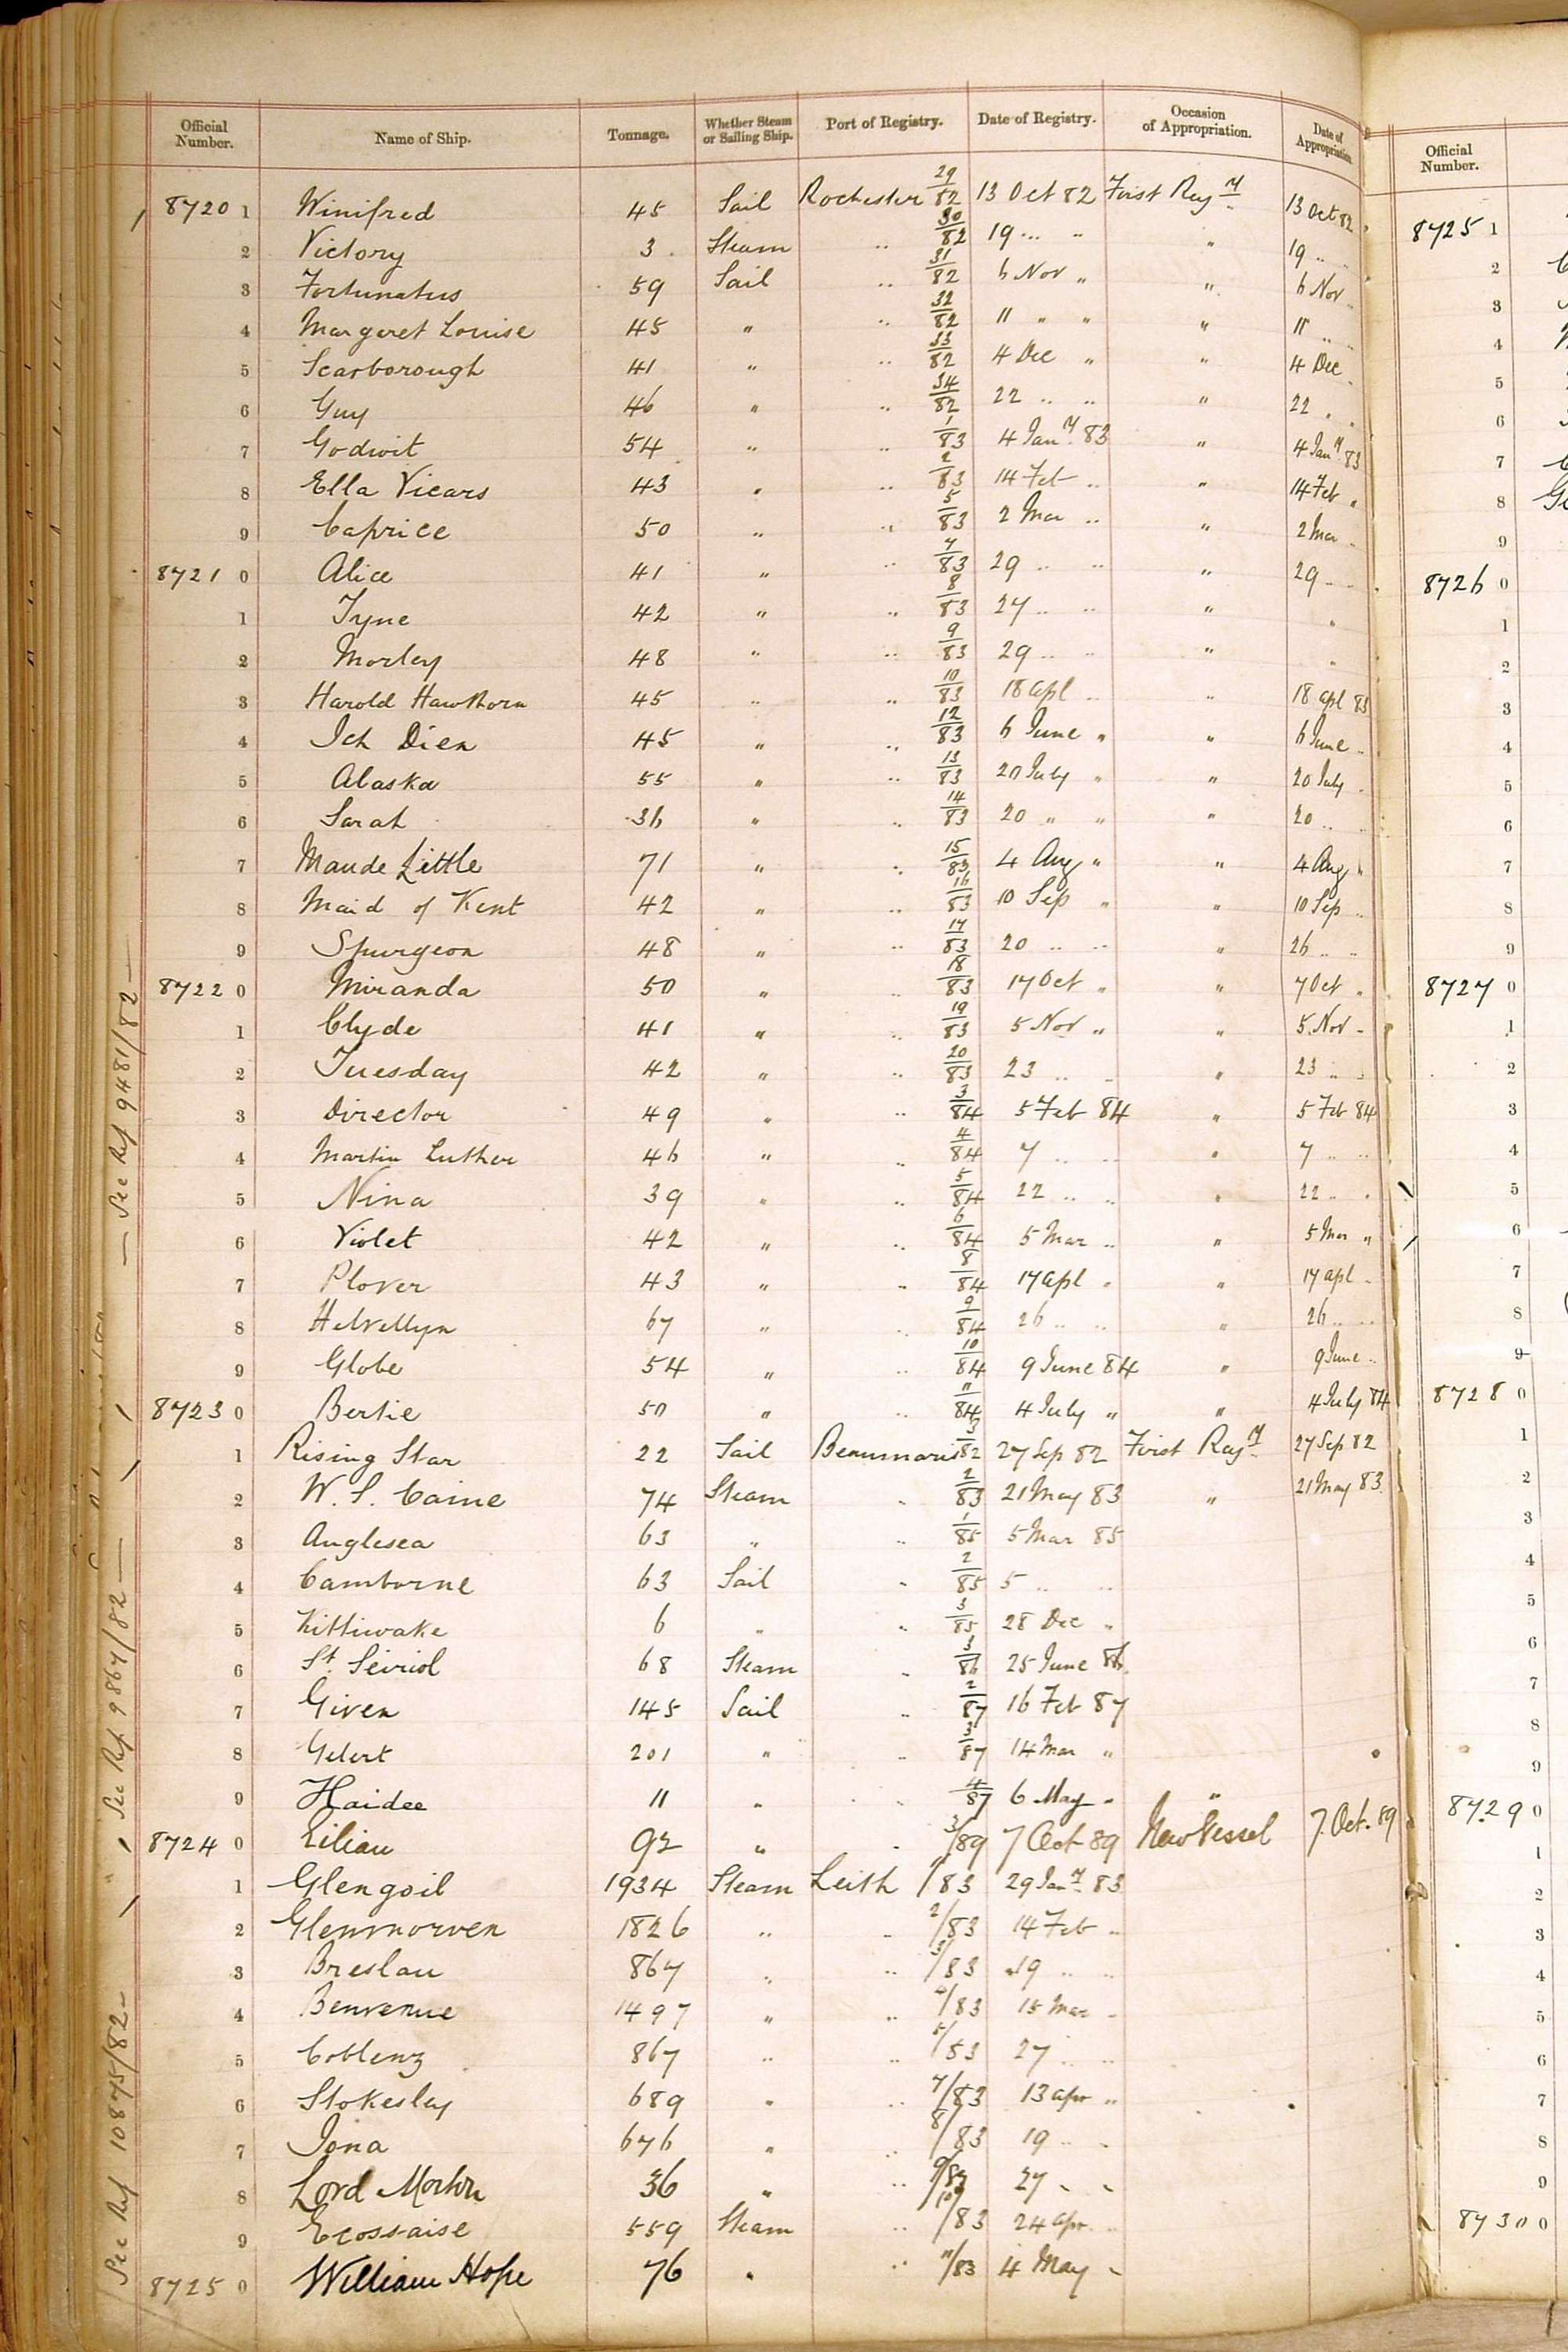 Official Number. Name of Ship. Tonnage. Whether Steam or Sailing Ship. Port of Registry. Date of Registry. Occasion of Appropriation. Date of Appropriation. Official Number.
8720 1 Winifred 45 Sail Rochester 29/82 13 Oct 82 First Regy 13 Oct 82 8725 1
2 Victory 3 Steam .. 30/82 19 .. .. " 19 .. .. 2
3 Fortunatus 59 Sail .. 31/82 6 Nov " " 6 Nov .. 3
4 Margaret Louise 45 " .. 32/82 11 " " " 11 .. .. 4
5 Scarborough 41 " .. 33/82 4 Dec " " 4 Dec .. 5
6 Guy 46 " .. 34/82 22 .. .. " 22 " 6
7 Godwit 54 " .. 1/83 4 Jany 83 " 4 Jany 83 7
8 Ella Vicars 43 " .. 2/83 14 Feb .. " 14 Feb " 8
9 Caprice 50 " .. 5/83 2 Mar .. " 2 Mar .. 9
8721 0 Alice 41 " .. 7/83 29 .. .. " 29 .. .. 8726 0
1 Tyne 42 " .. 8/83 27 .. .. " " 1
2 Morley 48 " .. 9/83 29 .. .. " " 2
3 Harold Hawthorn 45 " .. 10/83 18 Apl .. " 18 Apl 83 3
4 Ich Dien 45 " .. 12/83 6 June " " 6 June .. 4
5 Alaska 55 " .. 13/83 20 July " " 20 July .. 5
6 Sarah 36 " .. 14/83 20 " " " 20 .. .. 6
7 Maude Little 71 " .. 15/83 4 Aug " " 4 Aug " 7
8 Maid of Kent 42 " .. 16/83 10 Sep " " 10 Sep .. 8
9 Spurgeon 48 " .. 17/83 20 .. .. " 26 .. .. 9
8722 0 Miranda 50 " .. 18/83 17 Oct " " 7 Oct " 8727 0
1 Clyde 41 " .. 19/83 5 Nov " " 5 Nov .. 1
2 Tuesday 42 " .. 20/83 23 .. .. " 23 .. .. 2
3 Director 49 " .. 3/84 5 Feb 84 " 5 Feb 84 3
4 Martin Luther 46 " .. 4/84 7 .. .. " 7 .. .. 4
5 Nina 39 " .. 5/84 22 .. .. " 22 .. .. 5
6 Violet 42 " .. 6/84 5 Mar .. " 5 Mar " 6
7 Plover 43 " .. 8/84 17 Apl " " 17 Apl .. 7
8 Helvellyn 67 " .. 9/84 26 .. .. " 26 .. .. 8
9 Globe 54 " .. 10/84 9 June 84 " 9 June .. 9
8723 0 Bertie 50 " .. 11/84 4 July " " 4 July 84 8728 0
1 Rising Star 22 Sail Beaumaris 3/82 27 Sep 82 First Regy 27 Sep 82 1
2 W. S. Caine 74 Steam .. 2/83 21 May 83 " 21 May 83 2
3 Anglesea 63 " .. 1/85 5 Mar 85 3
4 Camborne 63 Sail .. 2/85 5 .. .. 4
5 Kittiwake 6 " .. 3/85 28 Dec " 5
6 St. Seiriol 68 Steam .. 3/86 25 June 86 6
7 Given 145 Sail .. 2/87 16 Feb 87 7
8 Gelert 201 " .. 3/87 14 Mar " 8
9 Haidee 11 " .. 4/87 6 May " " 9
8724 0 Lilian 92 " .. 3/89 7 Oct 89 New Vessel 7. Oct. 89 8729 0
1 Glengoil 1934 Steam Leith 1/83 29 Jany 83 1
2 Glenmorven 1826 " .. 2/83 14 Feb .. 2
3 Breslau 867 " .. 3/83 19 .. .. 3
4 Benvenue 1497 " .. 4/83 15 Mar .. 4
5 Coblenz 867 " .. 5/83 27 .. .. 5
6 Stokesley 689 " .. 7/83 13 Apr .. 6
7 Iona 676 " .. 8/83 19 .. .. 7
8 Lord Morton 36 " .. 9/83 27 " " 8
9 Ecossaise 559 Steam .. 10/83 24 Apr .. 9
8725 0 William Hope 76 " .. 11/83 4 May " 8730 0
See Ref 9481/82
See Ref 9867/82
See Ref 10875/82